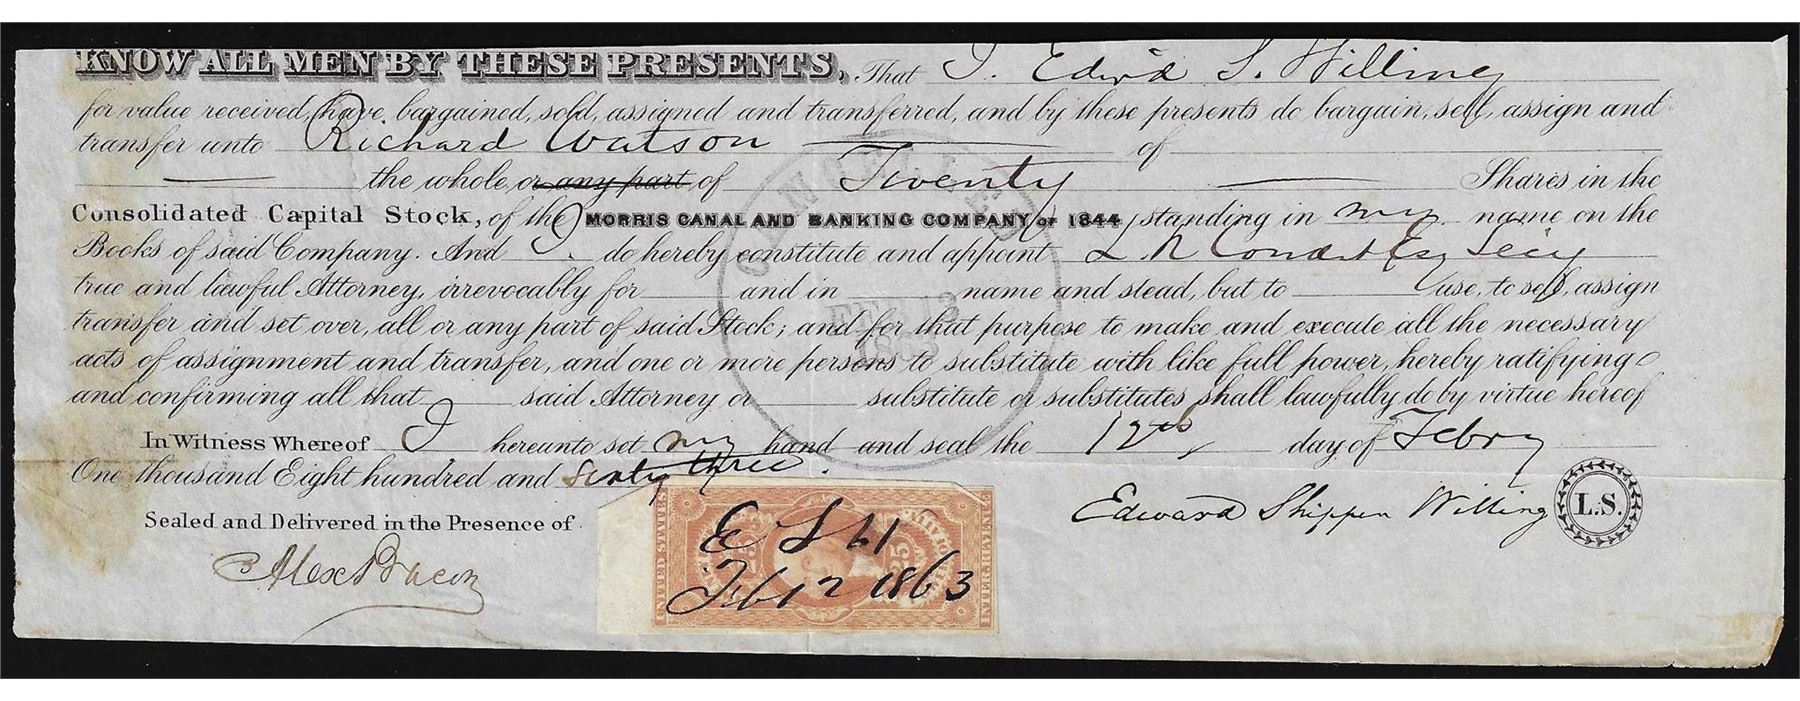 KNOW ALL MEN BY THESE PRESENTS, That I. Edwd S. Willing
for value received, have bargained, sold, assigned and transferred, and by these presents do bargain, sell, assign and
transfer unto Richard Watson of
the whole or any part of Twenty Shares in the
Consolidated Capital Stock, of the MORRIS CANAL AND BANKING COMPANY OF 1844, standing in my name on the
Books of said Company. And I. do hereby constitute and appoint Secy
true and lawful Attorney, irrevocably for and in name and stead, but to use, to sell, assign
transfer and set over, all or any part of said Stock; and for that purpose to make and execute all the necessary
acts of assignment and transfer, and one or more persons to substitute with like full power, hereby ratifying
and confirming all that said Attorney or substitute or substitutes shall lawfully do by virtue hereof
In Witness Whereof I hereunto set my hand and seal the 12th day of Febry
One thousand Eight hundred and sixty three.
Sealed and Delivered in the Presence of
Edward Shippen Willing L.S.
Alex Bacon
UNITED STATES
25 25
E S W
Feb 12 1863
FEB 13
1863